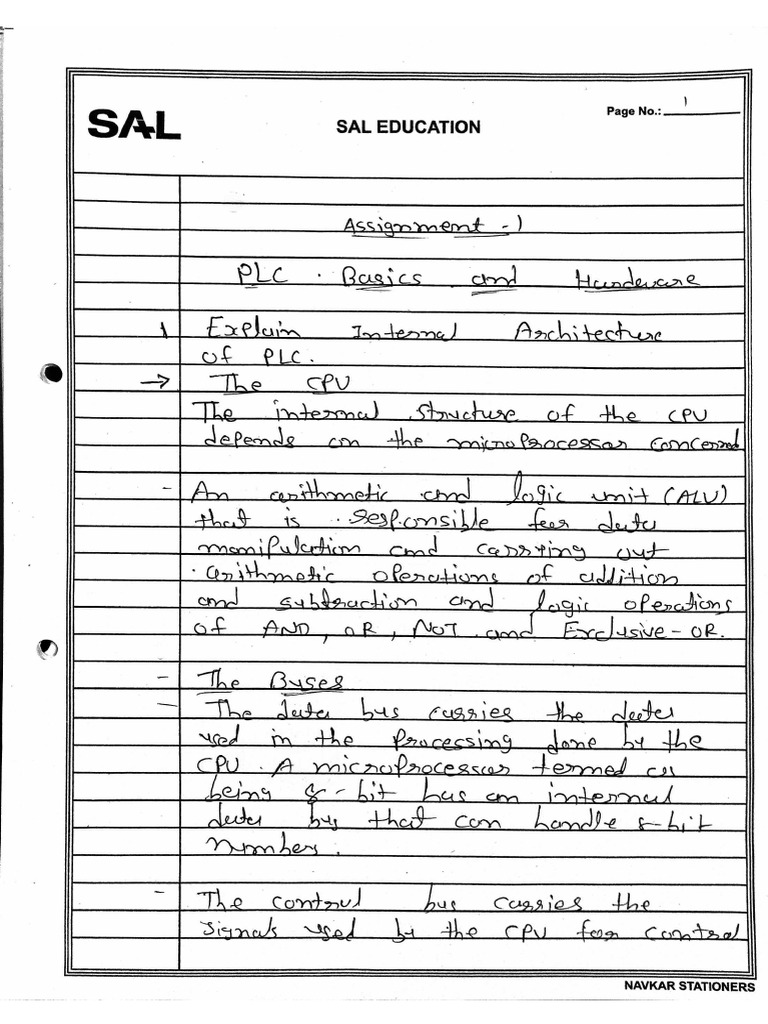 SAL
SAL EDUCATION
Page No.: 1
Assignment - 1
PLC . Basics and Hardware
1 Explain Internal Architecture
of PLC.
→ The CPU
The internal structure of the CPU
depends on the microprocessor concerned
- An arithmetic and logic unit (ALU)
that is responsible for data
manipulation and carrying out
arithmetic operations of addition
and subtraction and logic operations
of AND, OR, NOT and Exclusive-OR.
- The Buses
- The data bus carries the data
used in the processing done by the
CPU. A microprocessor termed as
being 8-bit has an internal
data bus that can handle 8-bit
numbers.
- The control bus carries the
signals used by the CPU for control
NAVKAR STATIONERS